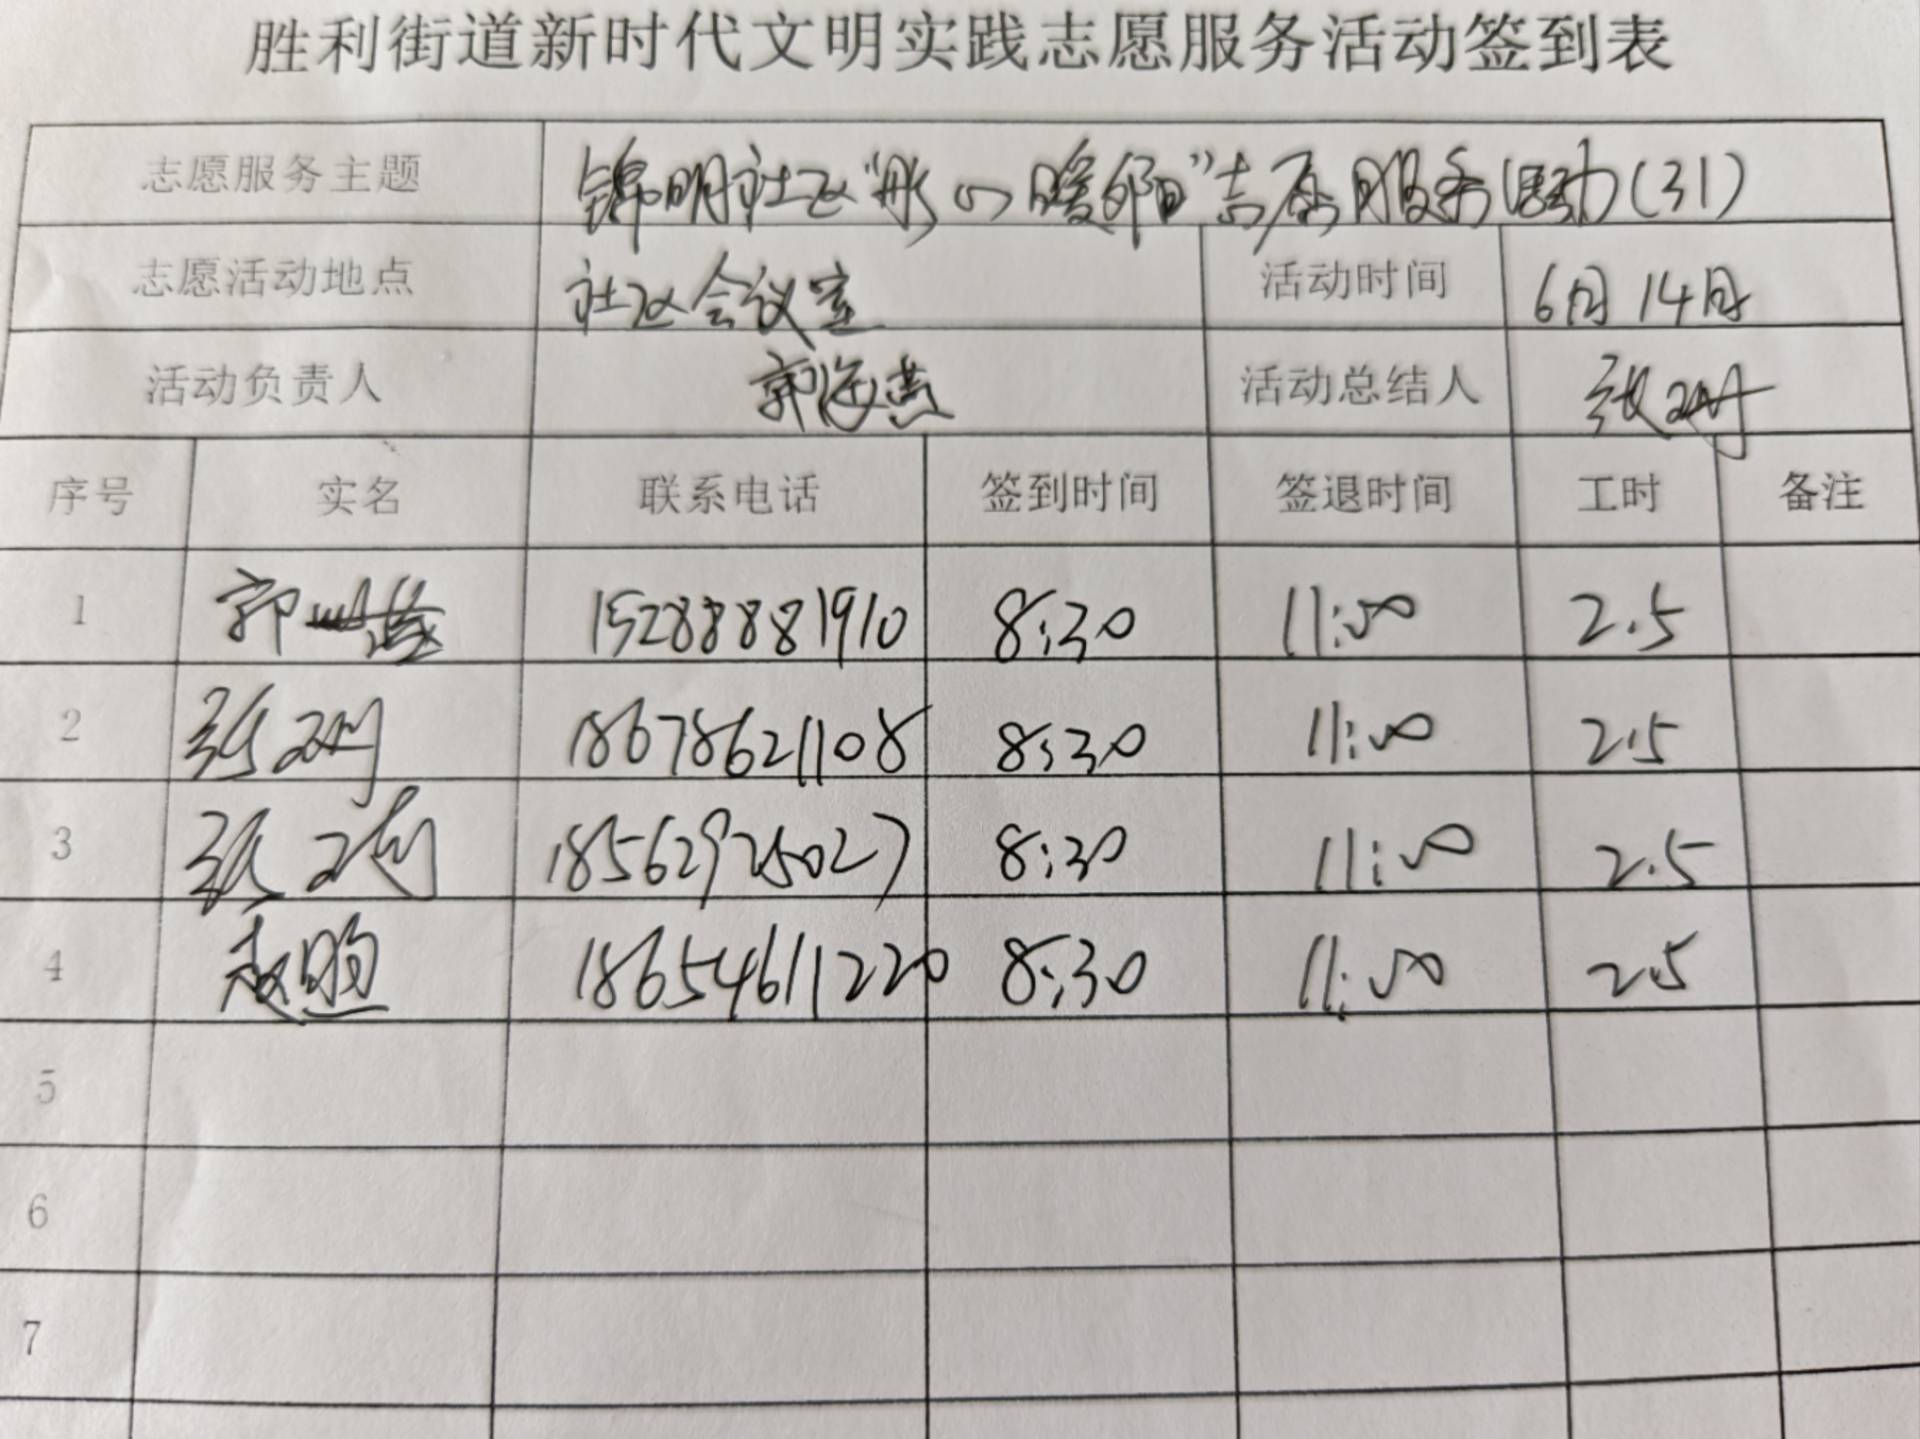 胜利街道新时代文明实践志愿服务活动签到表
志愿服务主题 锦明社区“彤心暖夕阳”志愿服务活动(31)
志愿活动地点 社区会议室 活动时间 6月14日
活动负责人 郭海燕 活动总结人 张
序号 实名 联系电话 签到时间 签退时间 工时 备注
1 郭 15288881910 8:30 11:00 2.5
2 张 18678621108 8:30 11:00 2.5
3 张 18562925027 8:30 11:00 2.5
4 赵 18654611220 8:30 11:00 2.5
5
6
7